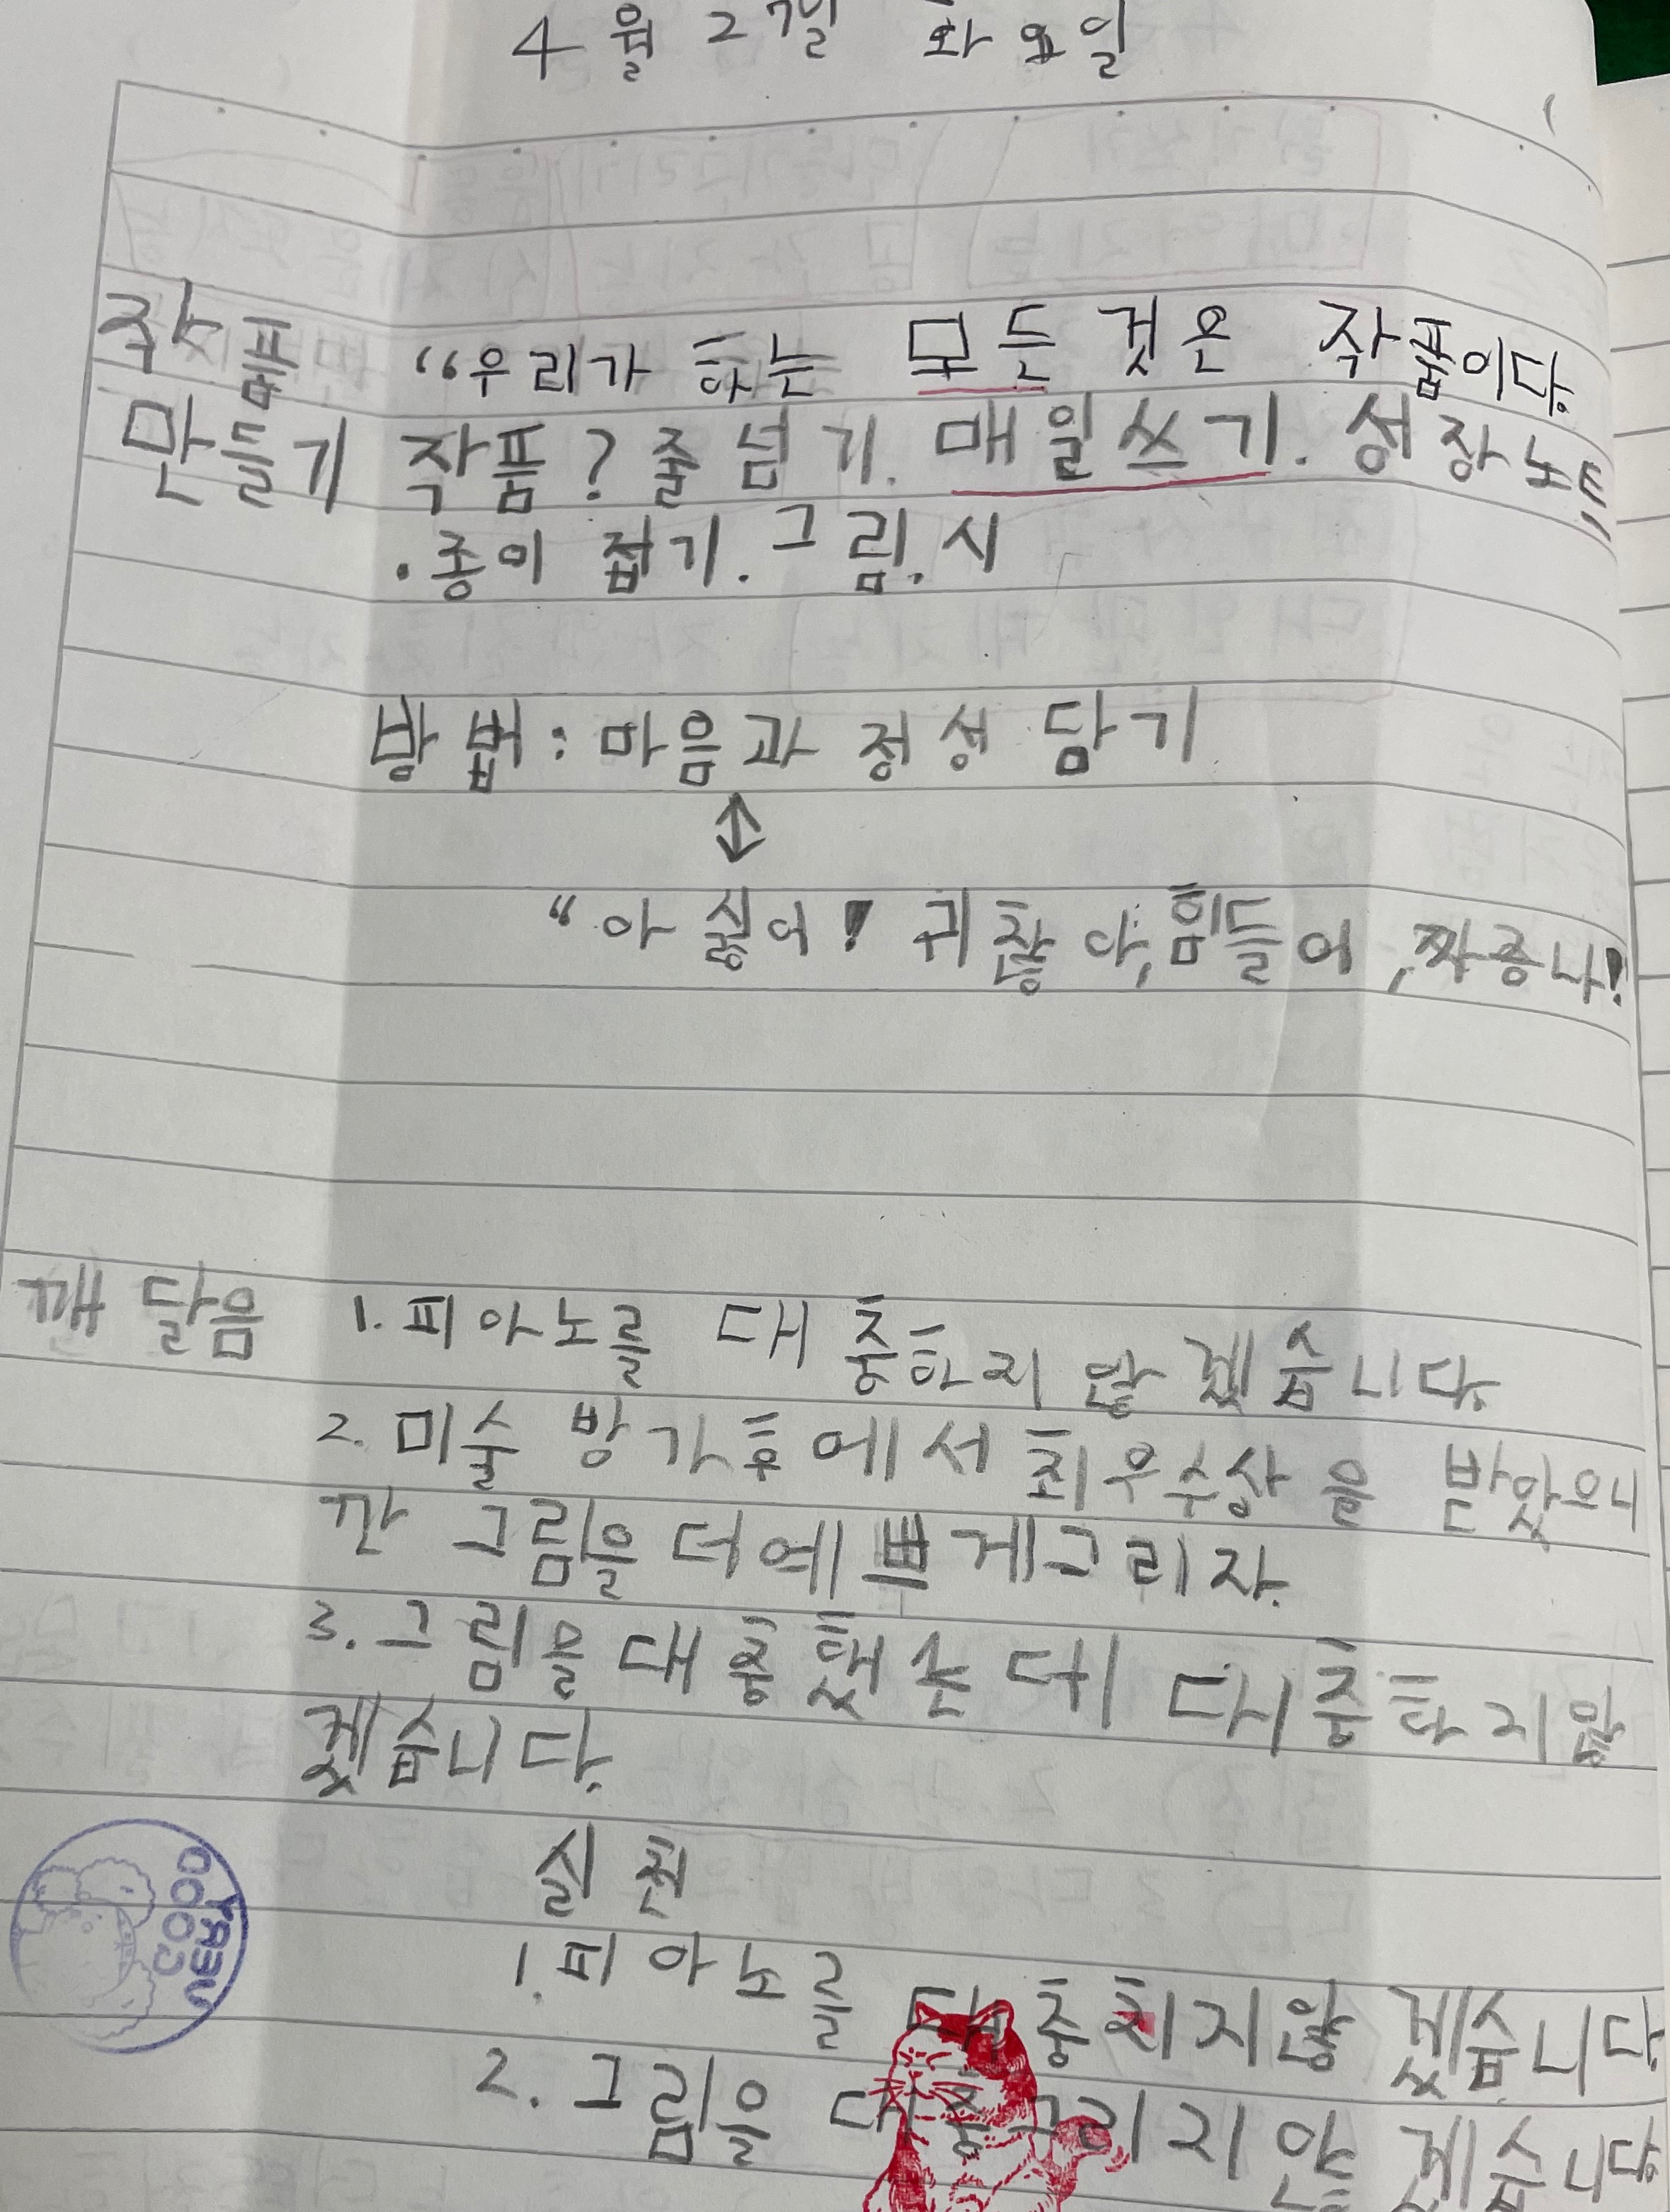 4월 27일 화요일
작품 "우리가 하는 모든 것은 작품이다.
만들기 작품? 줄넘기. 매일쓰기. 성장노트"
. 종이 접기. 그림. 시
방법: 마음과 정성 담기
↔
"아 싫어! 귀찮아, 힘들어, 짜증나!
깨달음 1. 피아노를 대충하지 않겠습니다.
2. 미술 방가후에서 최우수상을 받았으니
깐 그림을 더 예쁘게 그리자.
3. 그림을 대충했는데 대충하지 않
겠습니다.
실천
1. 피아노를 대충 치지 않겠습니다
2. 그림을 대충 그리지 않겠습니다.
VERY
GOOD